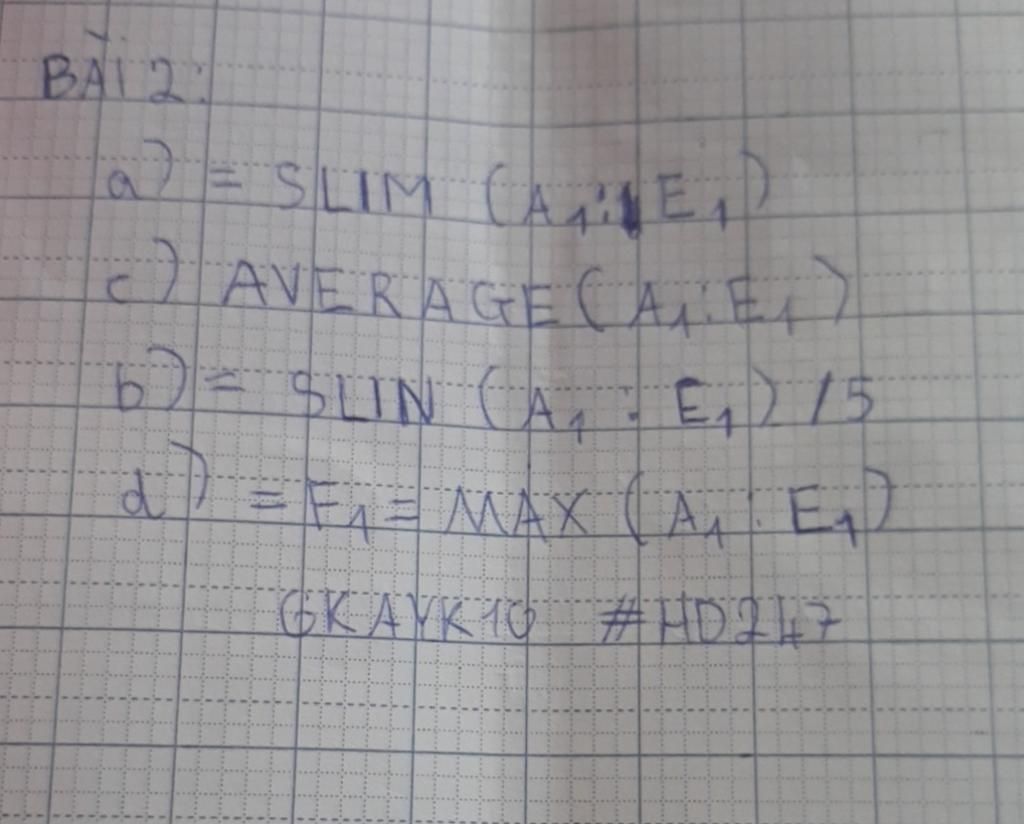 BÀI 2:
a) = SLIM (A1:E1)
c) AVERAGE (A1:E1)
b) = SLIN (A1 : E1) / 5
d) = F1 = MAX (A1 : E1)
GKAYK10 #HD247